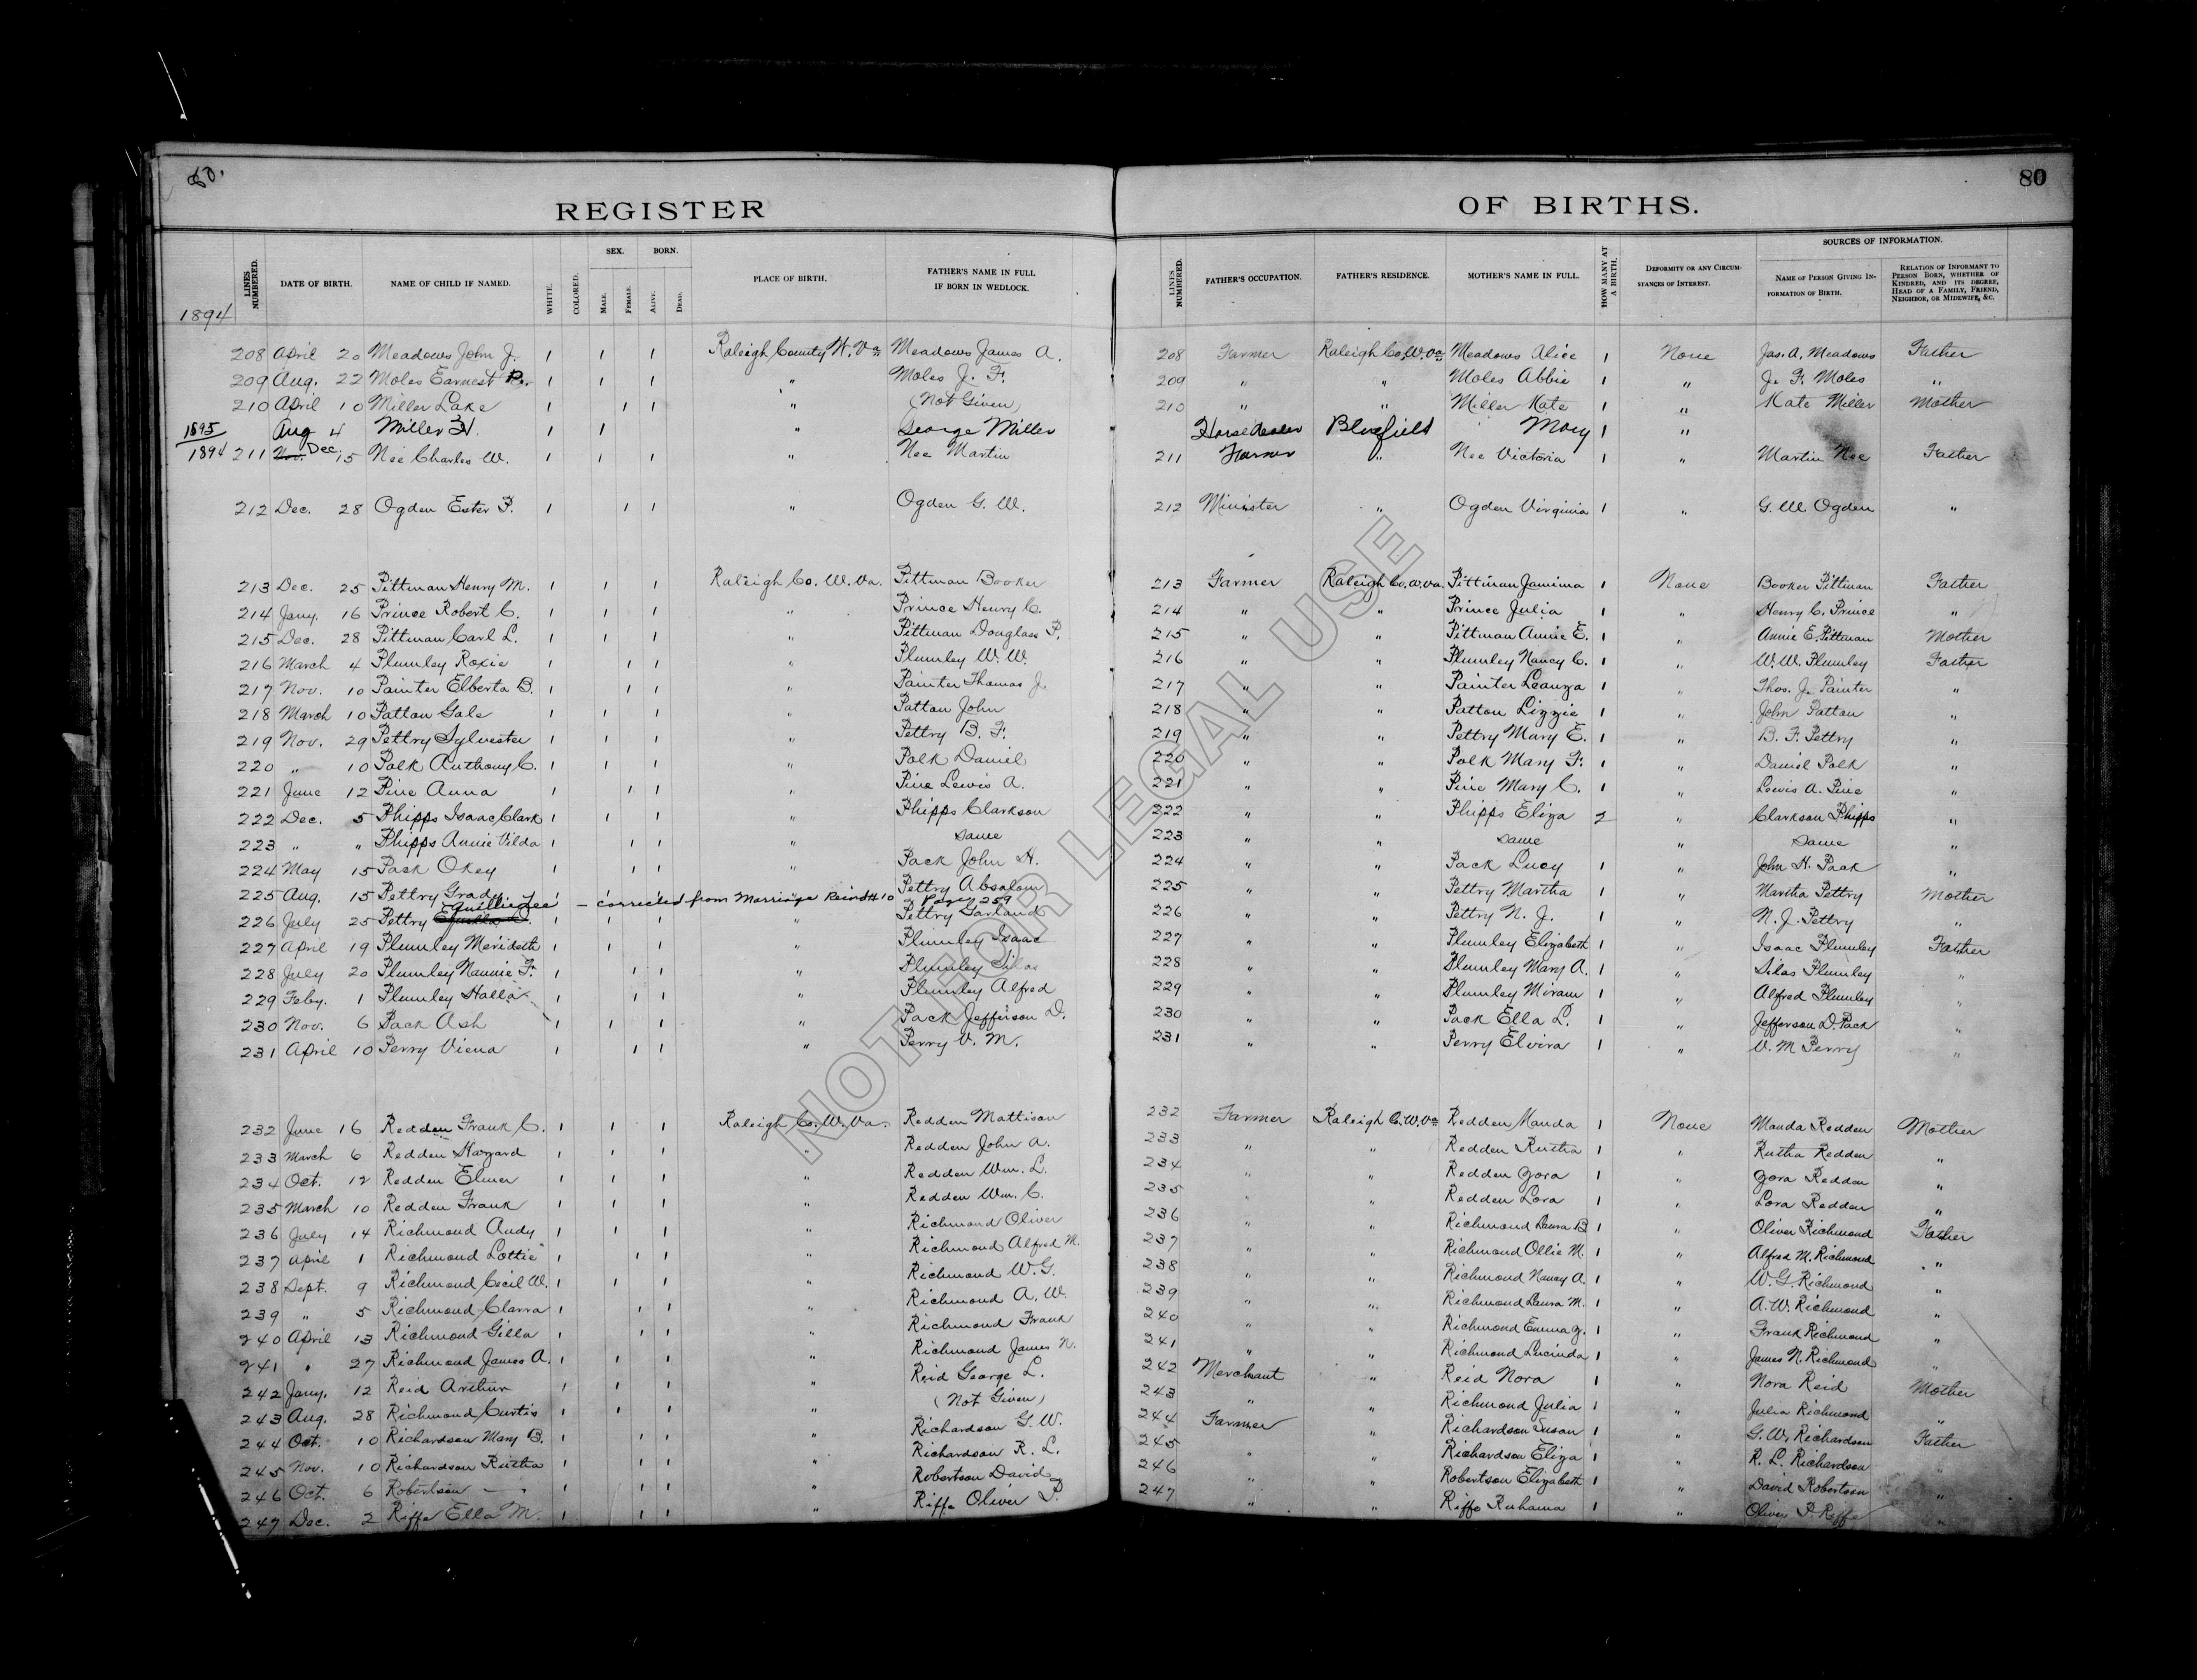 80.
80
REGISTER OF BIRTHS.
LINES NUMBERED. DATE OF BIRTH. NAME OF CHILD IF NAMED. WHITE. COLORED. SEX. MALE. FEMALE. BORN. ALIVE. DEAD. PLACE OF BIRTH. FATHER'S NAME IN FULL IF BORN IN WEDLOCK. LINES NUMBERED. FATHER'S OCCUPATION. FATHER'S RESIDENCE. MOTHER'S NAME IN FULL. HOW MANY AT A BIRTH. DEFORMITY OR ANY CIRCUMSTANCES OF INTEREST. SOURCES OF INFORMATION. NAME OF PERSON GIVING INFORMATION OF BIRTH. RELATION OF INFORMANT TO PERSON BORN, WHETHER OF KINDRED, AND ITS DEGREE, HEAD OF A FAMILY, FRIEND, NEIGHBOR, OR MIDWIFE, &C.
1894
208 April 20 Meadows John J. 1 1 1 Raleigh County W. Va Meadows James A. 208 Farmer Raleigh Co. W. Va Meadows Alice 1 None Jas. A. Meadows Father
209 Aug. 22 Moles Earnest P. 1 1 1 " Moles J. F. 209 " " Moles Abbie 1 " J. F. Moles "
210 April 10 Miller Lake 1 1 1 " (Not Given) 210 " " Miller Kate 1 " Kate Miller Mother
1895 Aug 4 Miller H. 1 1 " George Miller Horse dealer Bluefield Mary 1 "
1894 211 Nov. Dec. 15 Nee Charles W. 1 1 1 " Nee Martin 211 Farmer " Nee Victoria 1 " Martin Nee Father
212 Dec. 28 Ogden Ester P. 1 1 1 " Ogden G. W. 212 Minister " Ogden Virginia 1 " G. W. Ogden "
213 Dec. 25 Pittman Henry M. 1 1 1 Raleigh Co. W. Va. Pittman Booker 213 Farmer Raleigh Co. W. Va. Pittman Jamima 1 None Booker Pittman Father
214 Jany. 16 Prince Robert C. 1 1 1 " Prince Henry C. 214 " " Prince Julia 1 " Henry C. Prince "
215 Dec. 28 Pittman Carl L. 1 1 1 " Pittman Douglass P. 215 " " Pittman Annie E. 1 " Annie E. Pittman Mother
216 March 4 Plumley Roxie 1 1 1 " Plumley W. W. 216 " " Plumley Nancy C. 1 " W. W. Plumley Father
217 Nov. 10 Painter Elberta B. 1 1 1 " Painter Thomas J. 217 " " Painter Leanza 1 " Thos. J. Painter "
218 March 10 Patton Gale 1 1 1 " Patton John 218 " " Patton Lizzie 1 " John Patton "
219 Nov. 29 Pettry Sylvester 1 1 1 " Pettry B. F. 219 " " Pettry Mary E. 1 " B. F. Pettry "
220 " 10 Polk Anthony C. 1 1 1 " Polk Daniel 220 " " Polk Mary F. 1 " Daniel Polk "
221 June 12 Pine Anna 1 1 1 " Pine Lewis A. 221 " " Pine Mary C. 1 " Lewis A. Pine "
222 Dec. 5 Phipps Isaac Clark 1 1 1 " Phipps Clarkson 222 " " Phipps Eliza 2 " Clarkson Phipps "
223 " " Phipps Annie Vilda 1 1 1 " Same 223 " " Same " Same "
224 May 15 Pack Okey 1 1 1 " Pack John H. 224 " " Pack Lucy 1 " John H. Pack "
225 Aug. 15 Pettry Grady 1 1 1 " Pettry Absalom 225 " " Pettry Martha 1 " Martha Pettry Mother
Quillie Lee - corrected from Marriage Record #10 Page 259
226 July 25 Pettry 1 1 1 " Pettry Garland 226 " " Pettry N. J. 1 " N. J. Pettry "
227 April 19 Plumley Merideth 1 1 1 " Plumley Isaac 227 " " Plumley Elizabeth 1 " Isaac Plumley Father
228 July 20 Plumley Nannie F. 1 1 1 " Plumley Silas 228 " " Plumley Mary A. 1 " Silas Plumley "
229 Feby. 1 Plumley Halla 1 1 1 " Plumley Alfred 229 " " Plumley Miram 1 " Alfred Plumley "
230 Nov. 6 Pack Ash 1 1 1 " Pack Jefferson D. 230 " " Pack Ella L. 1 " Jefferson D. Pack "
231 April 10 Perry Viena 1 1 1 " Perry V. M. 231 " " Perry Elvira 1 " V. M Perry "
232 June 16 Redden Frank C. 1 1 1 Raleigh Co. W. Va. Redden Mattison 232 Farmer Raleigh C. W. Va Redden Manda 1 None Manda Redden Mother
233 March 6 Redden Hazzard 1 1 1 " Redden John A. 233 " " Redden Rutha 1 " Rutha Redden "
234 Oct. 12 Redden Elmer 1 1 1 " Redden Wm. L. 234 " " Redden Zora 1 " Zora Redden "
235 March 10 Redden Frank 1 1 1 " Redden Wm. C. 235 " " Redden Lora 1 " Lora Redden "
236 July 14 Richmond Andy 1 1 1 " Richmond Oliver 236 " " Richmond Laura B 1 " Oliver Richmond Father
237 April 1 Richmond Lottie 1 1 1 " Richmond Alfred M. 237 " " Richmond Ollie M. 1 " Alfred M. Richmond "
238 Sept. 9 Richmond Cecil W. 1 1 1 " Richmond W. G. 238 " " Richmond Nancy A. 1 " W. G. Richmond "
239 " 5 Richmond Clarra 1 1 1 " Richmond A. W. 239 " " Richmond Laura M. 1 " A. W. Richmond "
240 April 13 Richmond Gilla 1 1 1 " Richmond Frank 240 " " Richmond Emma Z. 1 " Frank Richmond "
241 " 27 Richmond James A. 1 1 1 " Richmond James N. 241 " " Richmond Lucinda 1 " James N. Richmond "
242 Jany. 12 Reid Arthur 1 1 1 " Reid George L. 242 Merchant " Reid Nora 1 " Nora Reid Mother
243 Aug. 28 Richmond Curtis 1 1 1 " (Not Given) 243 " " Richmond Julia 1 " Julia Richmond "
244 Oct. 10 Richardson Mary B. 1 1 1 " Richardson G. W. 244 Farmer " Richardson Susan 1 " G. W. Richardson Father
245 Nov. 10 Richardson Rutha 1 1 1 " Richardson R. L. 245 " " Richardson Eliza 1 " R. L. Richardson "
246 Oct. 6 Robertson - - 1 1 1 " Robertson David 246 " " Robertson Elizabeth 1 " David Robertson "
247 Dec. 2 Riffe Ella M. 1 1 1 " Riffe Oliver P. 247 " " Riffe Ruhama 1 " Oliver P. Riffe "
NOT FOR LEGAL USE